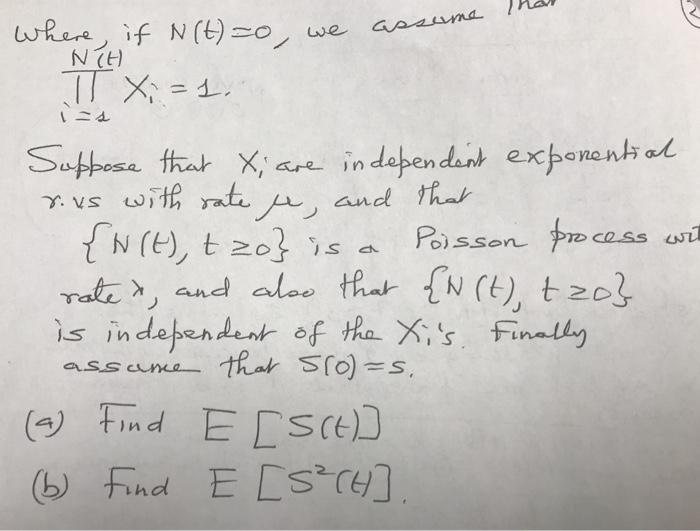 where, if N(t)=0, we assume that
N(t)
∏ Xi = 1.
i=1
Suppose that Xi are independent exponential
r.vs with rate μ, and that
{N(t), t≥0} is a Poisson process
rate λ, and also that {N(t), t≥0}
is independent of the Xi's. Finally
assume that S(0)=s.
(a) Find E[S(t)]
(b) Find E[S²(t)].